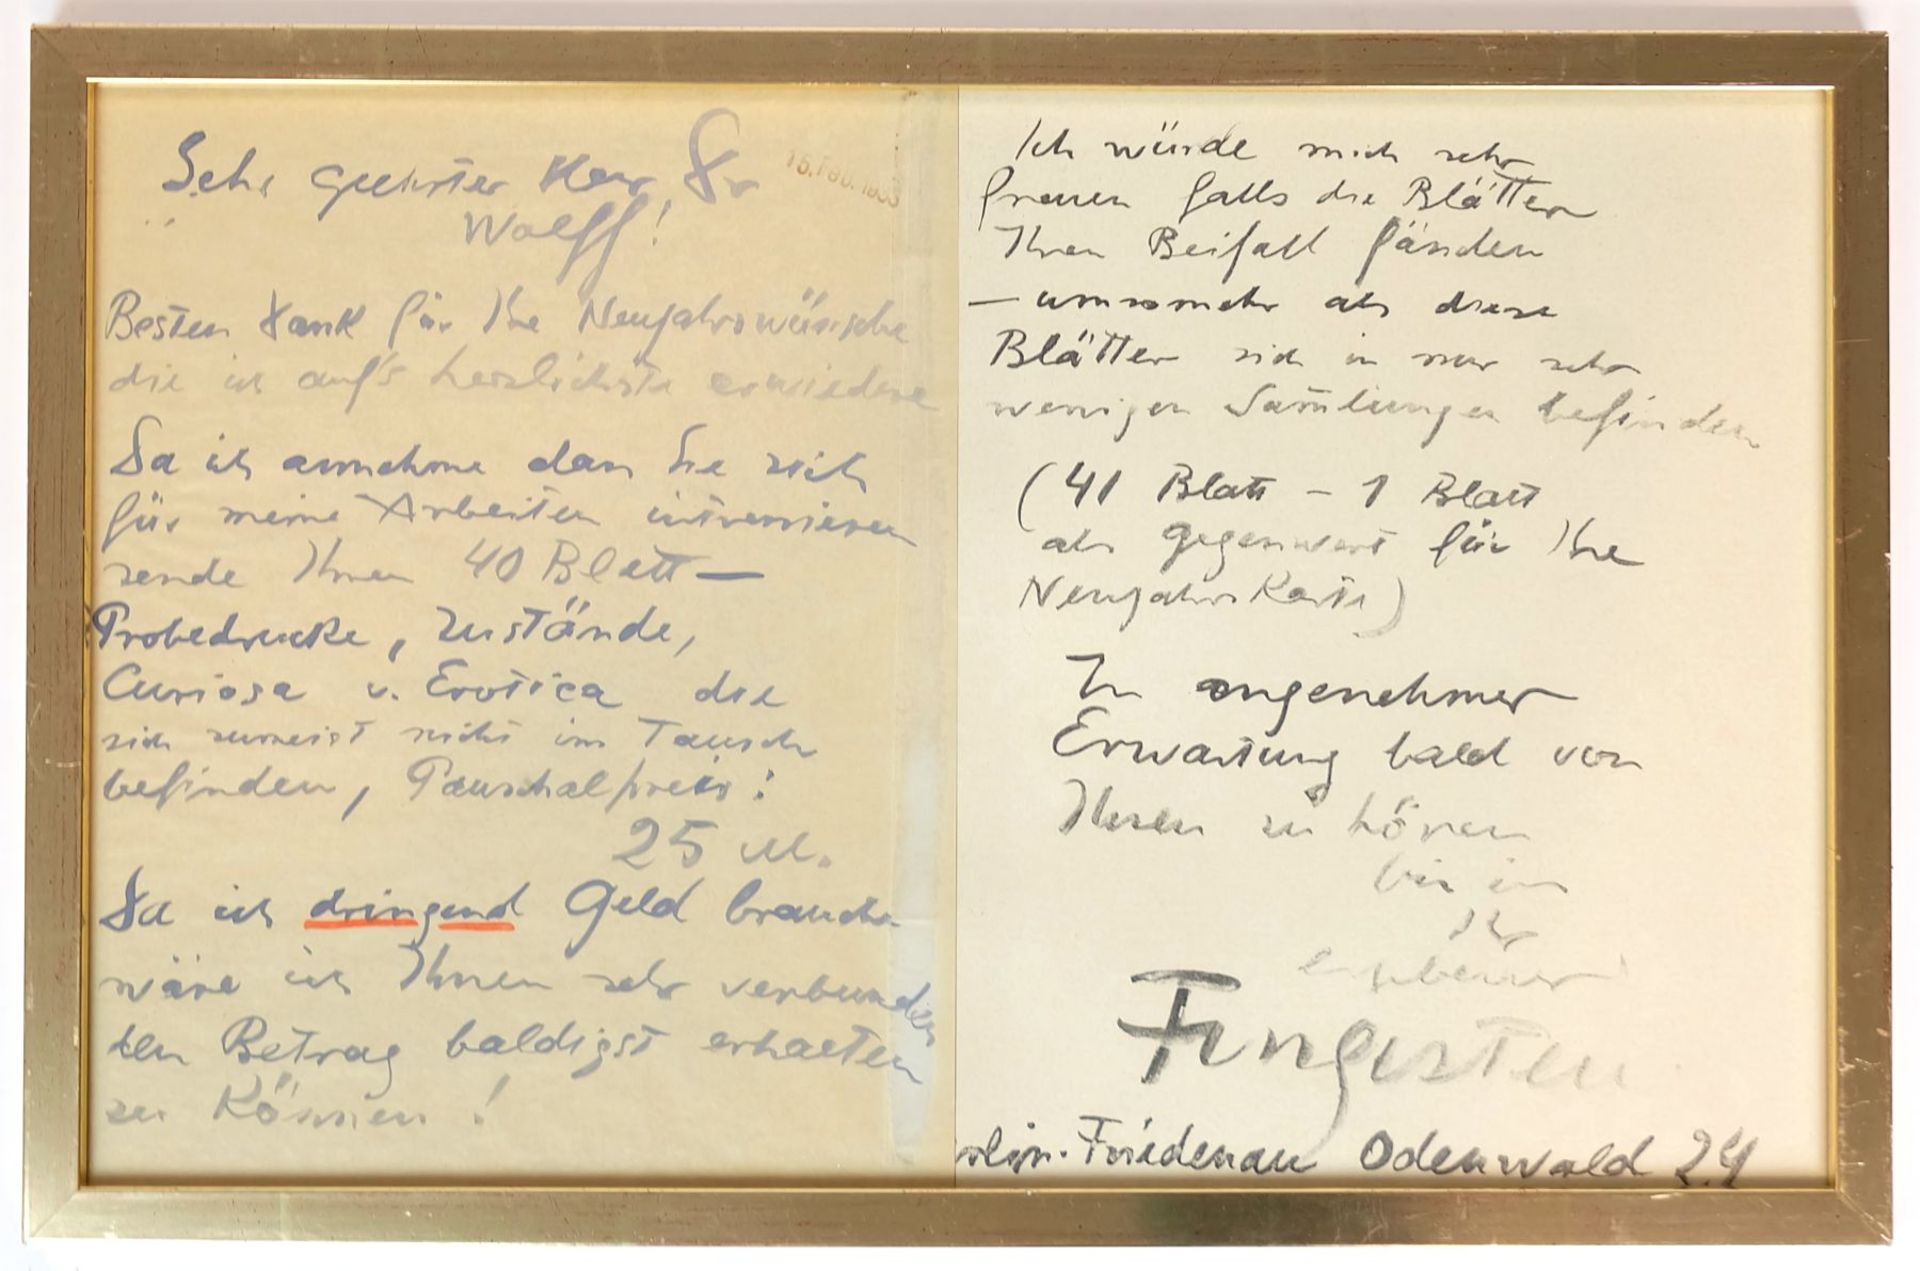 Sehr geehrter Herr Dr
Wolff!
15. Feb. 1933
Besten Dank für Ihre Neujahrswünsche
die ich auf's herzlichste erwiedere
Da ich annehme dass Sie sich
für meine Arbeiten interessieren
sende Ihnen 40 Blatt —
Probedrucke, Zustände,
Curiosa u. Erotica die
sich zumeist nicht im Tausch
befinden, Pauschalpreis:
25 M.
Da ich dringend Geld brauche
wäre ich Ihnen sehr verbunden
den Betrag baldigst erhalten
zu können!
Ich würde mich sehr
freuen falls die Blätter
Ihren Beifall fänden
— umsomehr als diese
Blätter sich in nur sehr
wenigen Sam̄lungen befinden
(41 Blatt – 1 Blatt
als Gegenwert für Ihre
Neujahrskarte)
In angenehmer
Erwartung bald von
Ihnen zu hören
bin ich
Ihr
ergebener
Fingesten
rlin-Friedenau Odenwald 24